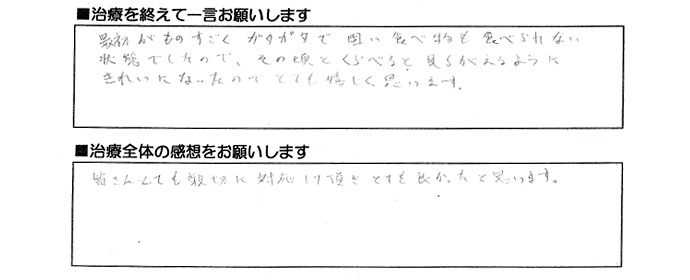 ■治療を終えて一言お願いします
最初がものすごくガタガタで固い食べ物も食べれない
状態でしたので、その頃とくらべると見ちがえるように
きれいになったのでとても嬉しく思います。
■治療全体の感想をお願いします
皆さんとても親切に対応して頂きとても良かったと思います。